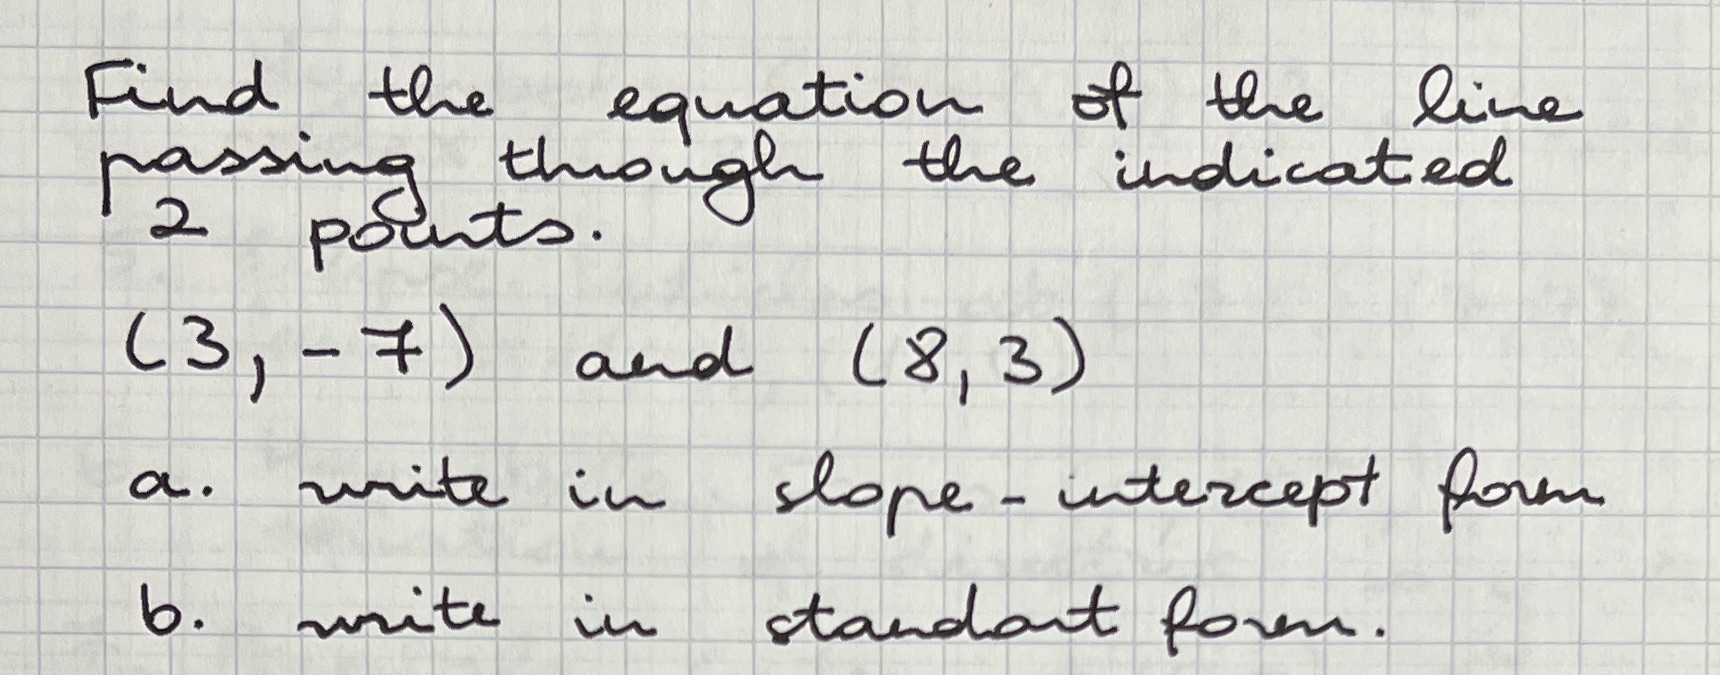 Find the equation of the line
passing through the indicated
2 points.
(3, -7) and (8, 3)
a. write in slope-intercept form
b. write in standart form.